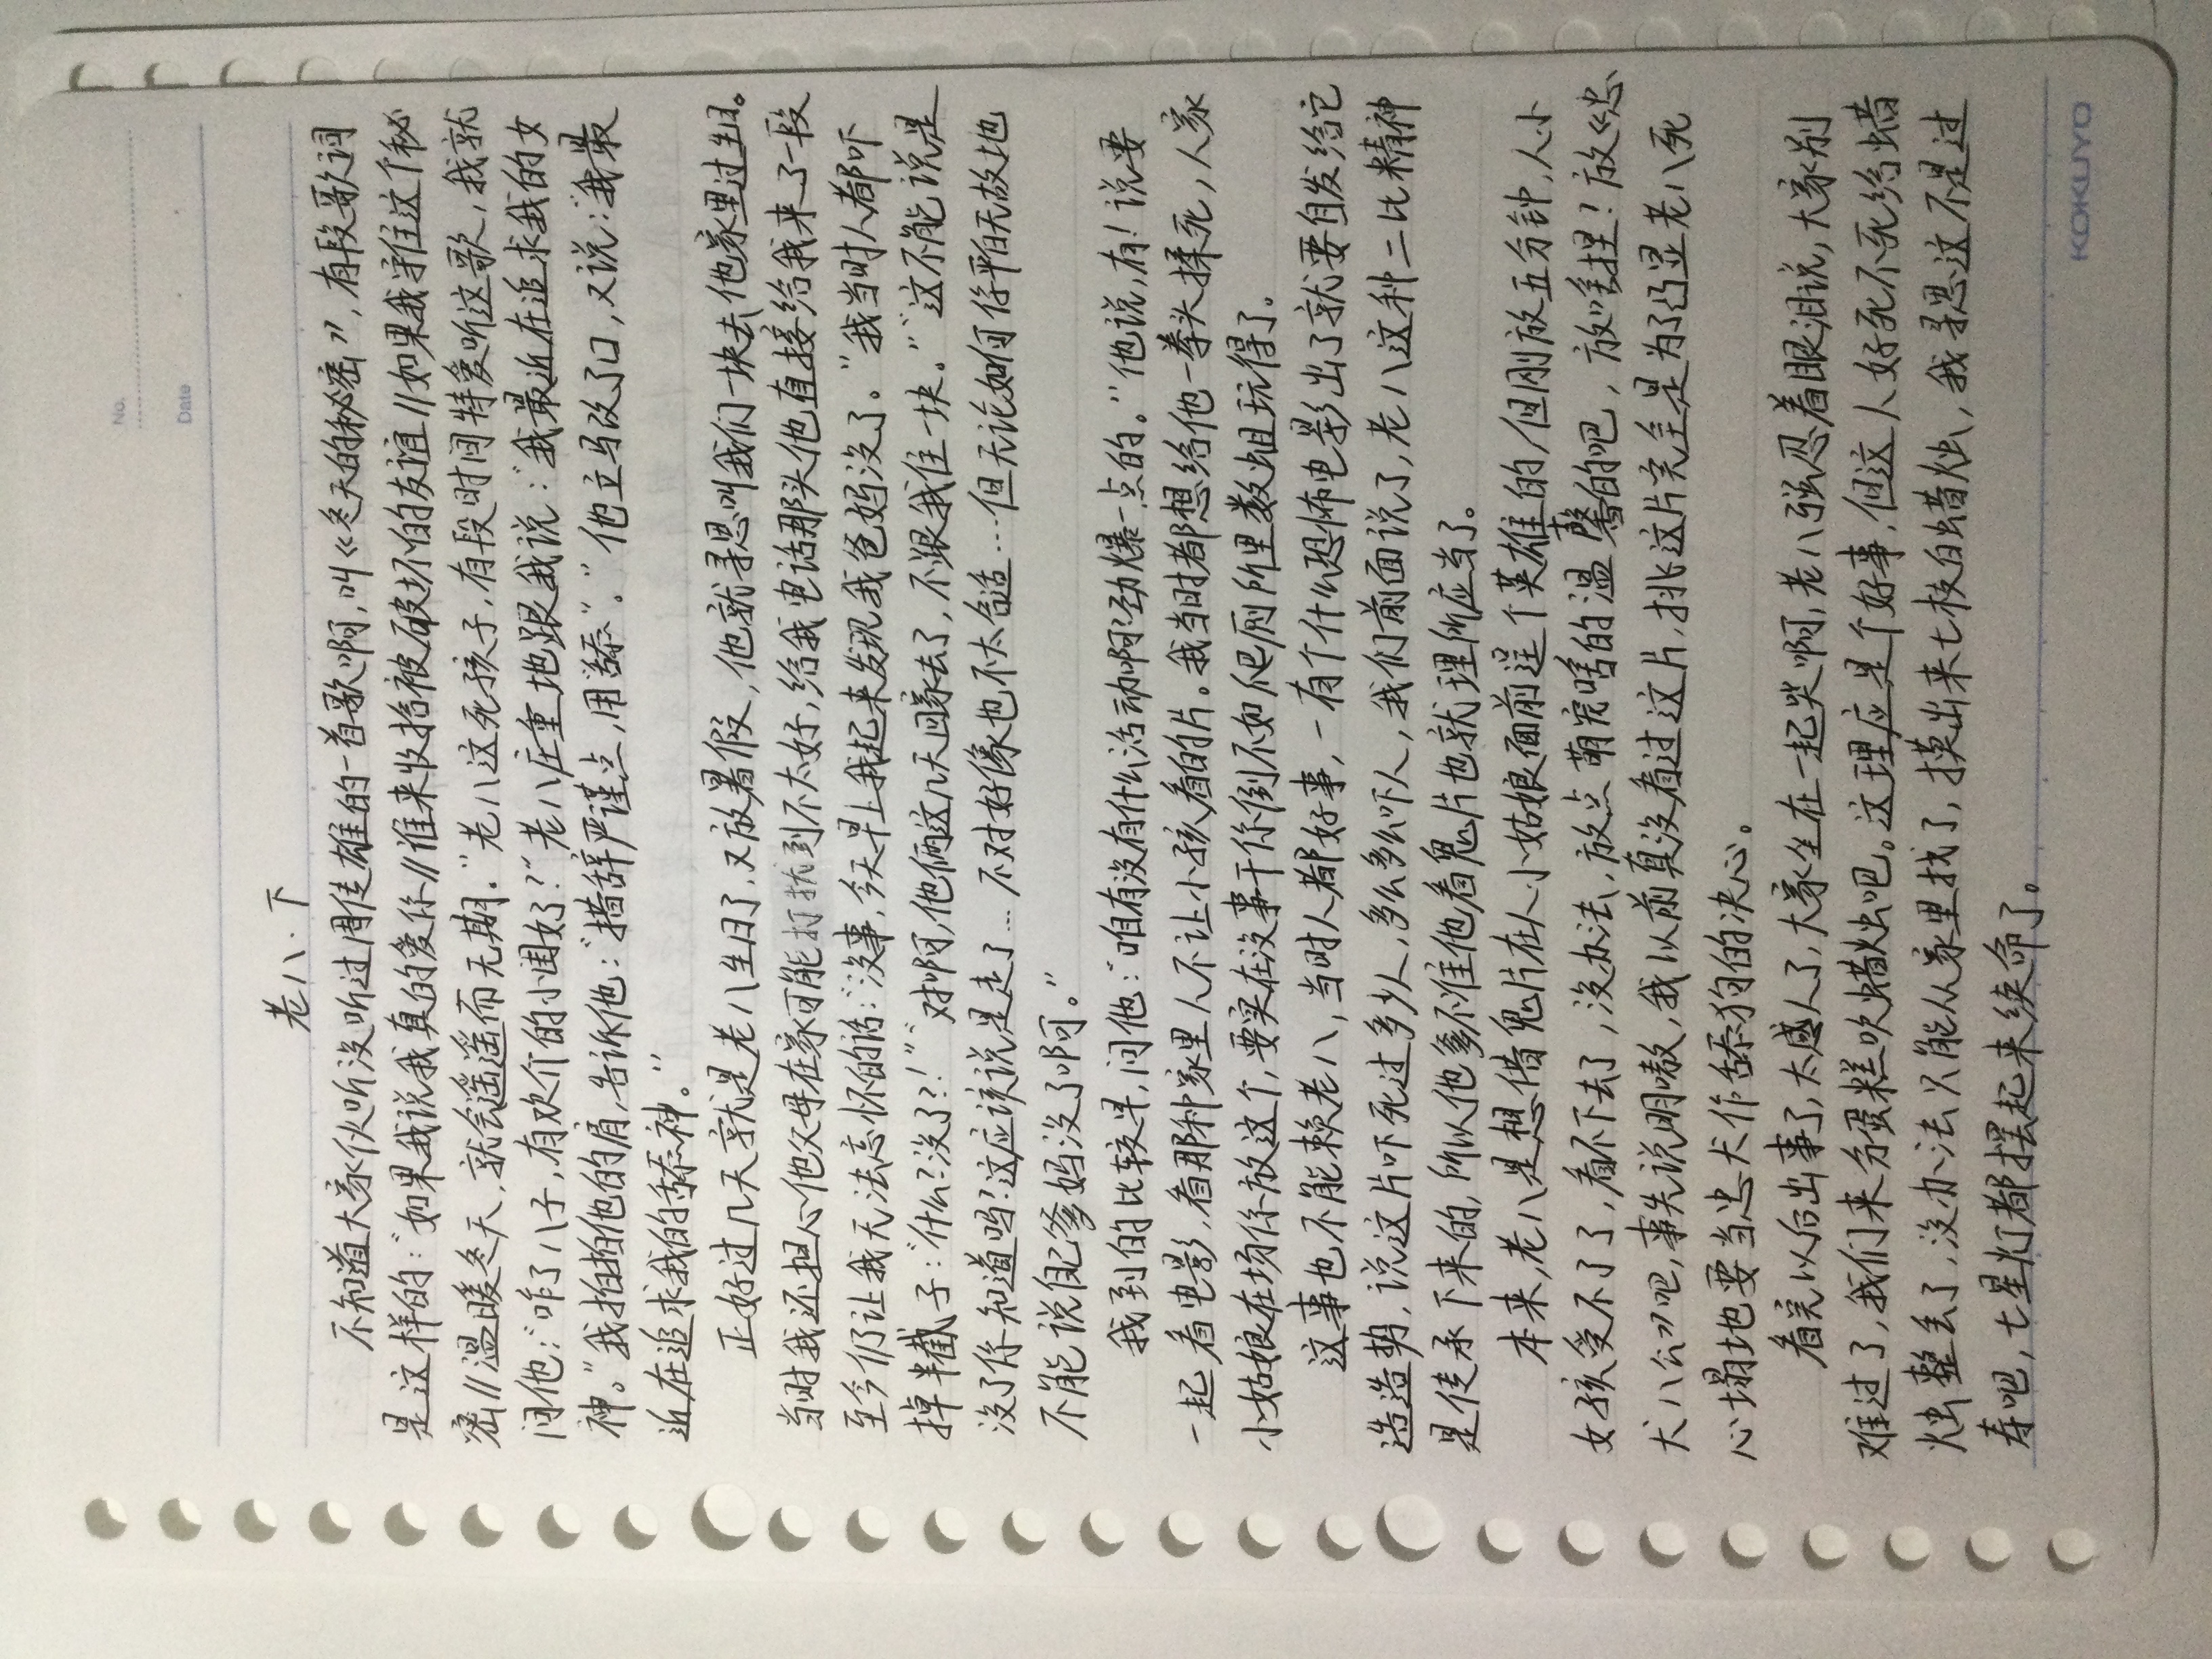 No.
Date
老八·下
不知道大家伙听没听过周传雄的一首歌啊,叫《冬天的秘密》,有段歌词
是这样的:“如果我说我真的爱你//谁来收拾被破坏的友谊//如果我守住这个秘
密//温暖冬天,就会遥遥而无期.”老八这死孩子,有段时间特爱听这歌,我就
问他:“咋了八子,有欢介的小闺女了?”老八庄重地跟我说:“我最近在追求我的女
神。”我拍拍他的肩,告诉他:“措辞严谨点,用“舔”。”他立马改了口,又说:“我最
近在追求我的舔神。”
正好过几天就是老八生日了,又放暑假,他就寻思叫我们一块去他家里过生日。
当时我还担心他父母在家可能打扰到不太好,给我电话那头他直接给我来了一段
至今仍让我无法忘怀的话:“没事,今天早上我起来发现我爸妈没了。”我当时人都吓
掉半截子:“什么?没了?!”“对啊,他俩这几天回家去了,不跟我住一块。”“这不能说是
没了你知道吗?这应该说是走了…不对好像也不太合适…但无论如何你平白无故地
不能说自己爹妈没了啊。”
我到的比较早,问他:“咱有没有什么活动啊?劲爆一点的。”他说,有!说要
一起看电影,看那种家里人不让小孩看的片。我当时都想给他一拳头揍死,人家
小姑娘在场你放这个,要实在没事干你倒不如爬厕所里数蛆玩得了。
这事也不能赖老八,当时人都好事,一有个什么恐怖电影出了就要自发给它
造造势,说这片吓死过多少人,多么多么吓人,我们前面说了,老八这种二比精神
是传承下来的,所以他爹不准他看鬼片也就理所应当了。
本来,老八是想借鬼片在人小姑娘面前逞个英雄的,但刚放五分钟,人小
女孩受不了了,看不下去了,没办法,放点萌宠啥的温馨的吧,放啥捏?放《忠
犬八公》吧,事先说明嗷,我以前真没看过这片,挑这片完全是为了凸显老八死
心塌地要当忠犬作舔狗的决心。
看完以后出事了,太感人了,大家坐在一起哭啊,老八强忍着眼泪说,大家别
难过了,我们来分蛋糕吹蜡烛吧。这理应是个好事,但这人好死不死给蜡
烛整丢了,没办法只能从家里找了,摸出来七枝白蜡烛,我寻思这不是过
寿吧,七星灯都摆起来续命了。
KOKUYO